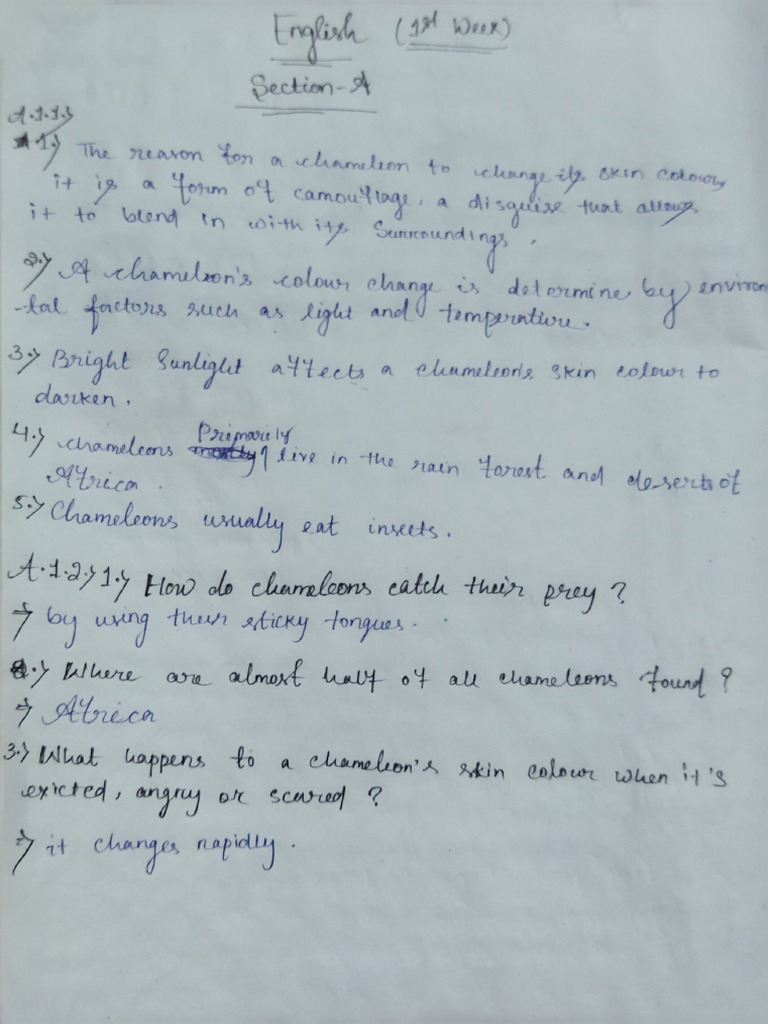 English (1st Week)
Section-A
A.1.1.>
1.> The reason for a chameleon to change its skin colour,
it is a form of camouflage, a disguise that allows
it to blend in with its Surroundings.
2.> A chameleon's colour change is determine by environ
-tal factors such as light and temperature.
3.> Bright Sunlight affects a chameleon's skin colour to
darken.
Primarily
4.> Chameleons live in the rain forest and deserts of
Africa.
5.> Chameleons usually eat insects.
A.1.2.> 1.> How do chameleons catch their prey?
⇒ by using their sticky tongues.
2.> Where are almost half of all chameleons found?
⇒ Africa
3.> What happens to a chameleon's skin colour when it's
exicted, angry or scared?
⇒ it changes rapidly.